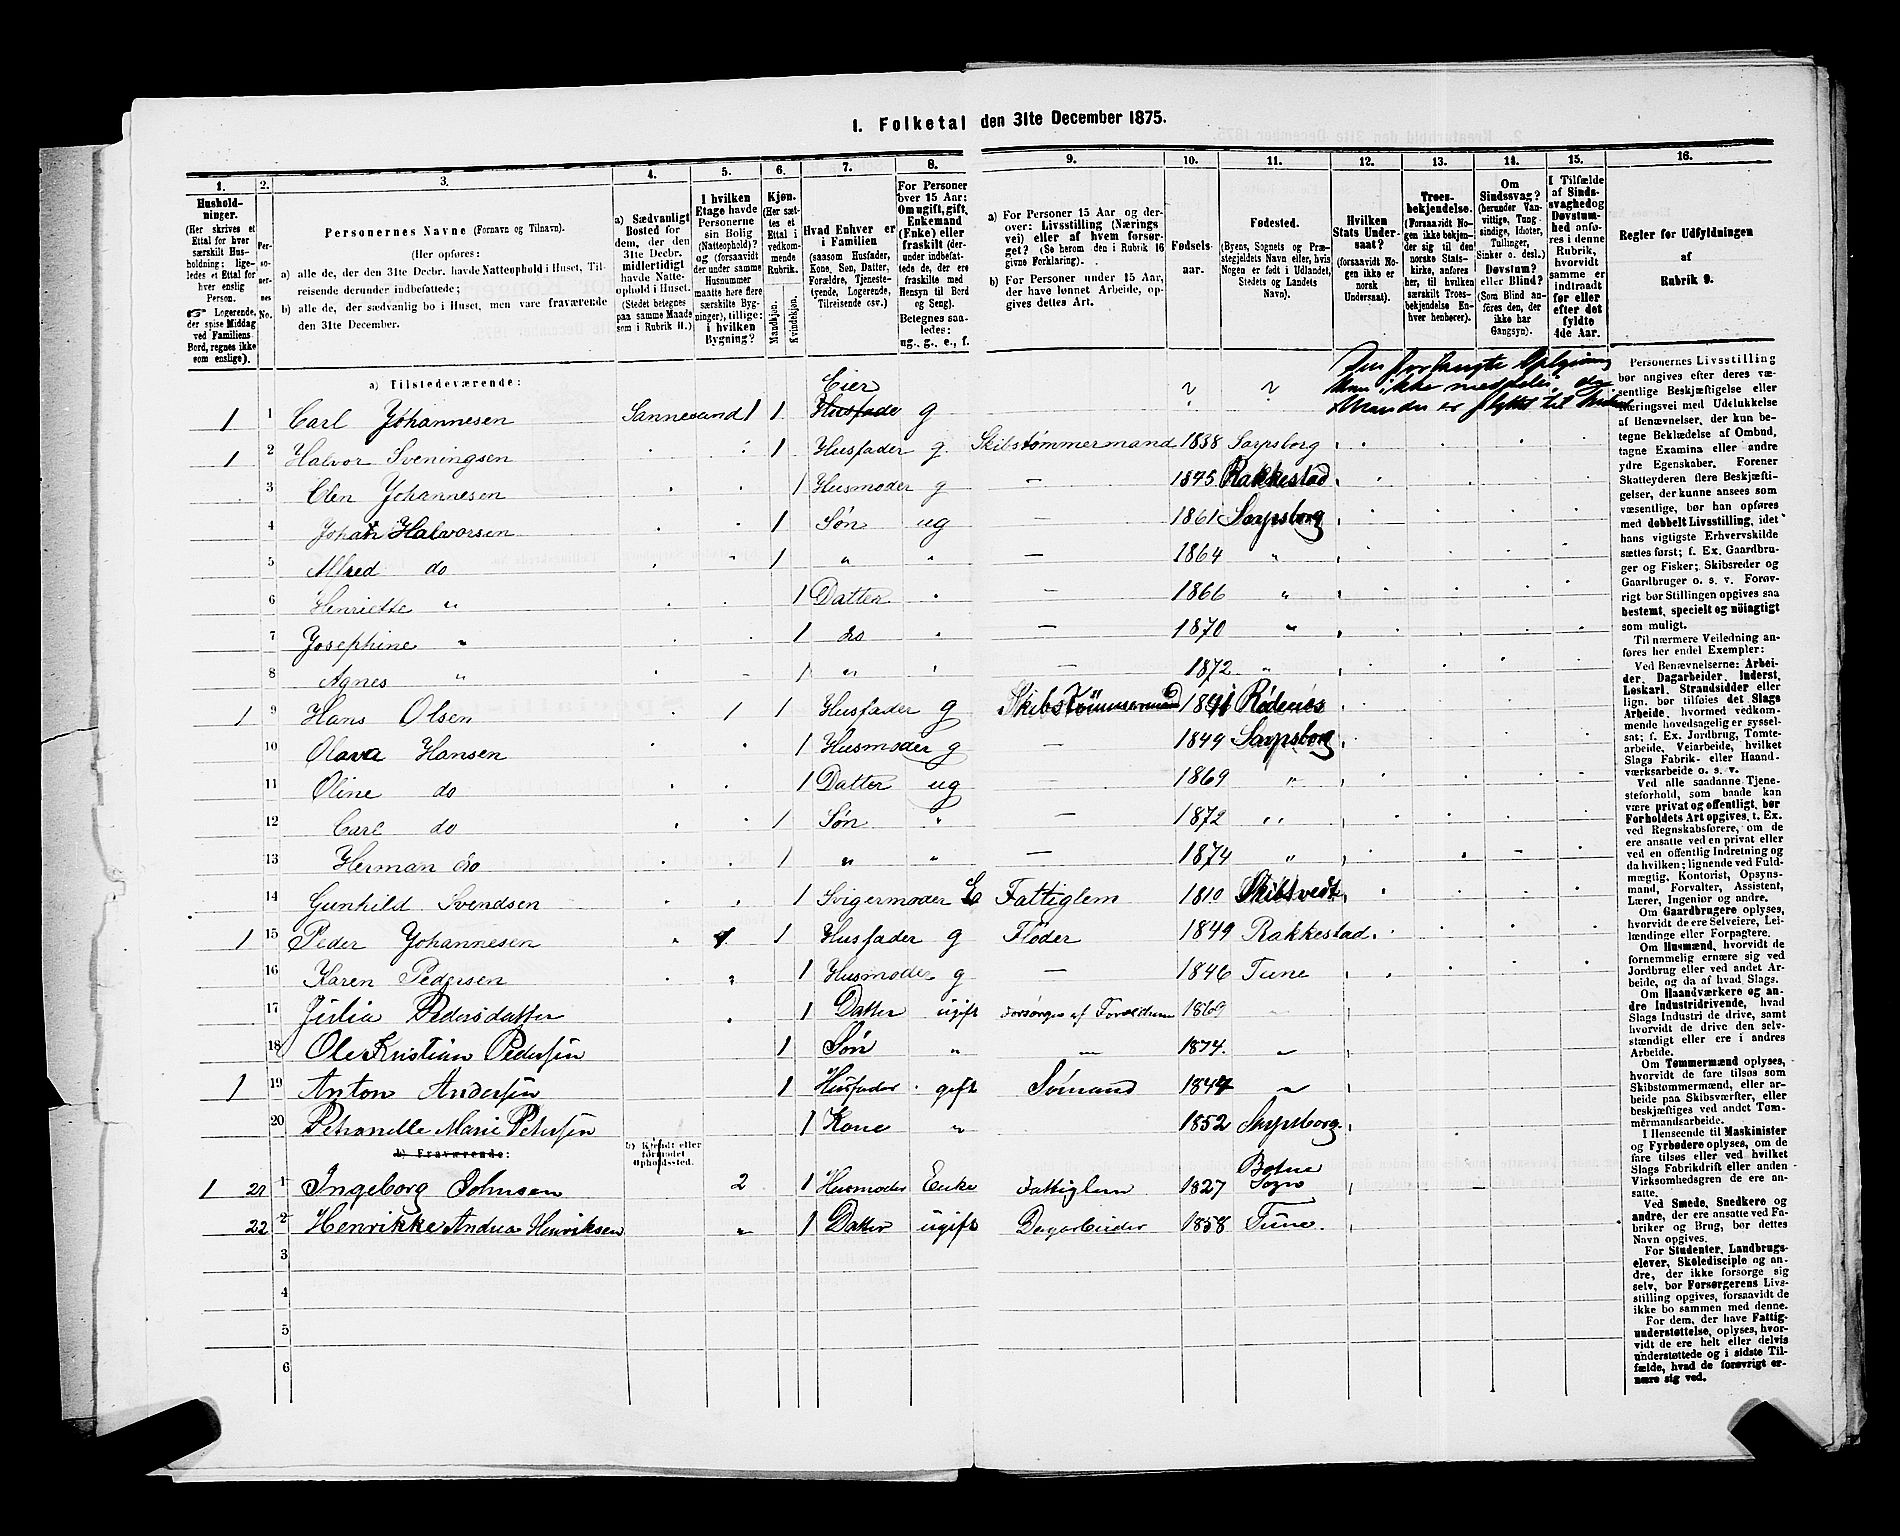 1. Folketal den 31te December 1875.
1. 2. 3. 4. 5. 6. 7. 8. 9. 10. 11. 12. 13. 14. 15. 16.
Hushold-
ninger.
(Her skrives et
Ettal for hver
særskilt Hus-
holdning; lige-
ledes et Ettal for
hver enslig
Person.
☞ Logerende,
der spise Middag
ved Familiens
Bord, regnes ikke
som enslige).
Per-
so-
ner-
nes
No.
Personernes Navne (Fornavn og Tilnavn).
(Her opføres:
a) alle de, der den 31te Decbr. havde Natteophold i Huset, Til-
reisende derunder indbefattede;
b) alle de, der sædvanlig bo i Huset, men vare fraværende
den 31te December.
a) Sædvanligt
Bosted for
dem, der den
31te Decbr.
midlertidigt
havde Natte-
ophold i Huset.
(Stedet betegnes
paa samme Maade
som i Rubrik 11.)
I hvilken
Etage havde
Personerne
sin Bolig
(Natteophold)?
og (forsaavidt
der under samme
Husnummer
maatte høre flere
særskilte Byg-
ninger), tillige:
i hvilken
Bygning?
Kjøn.
(Her sæt-
tes et
Ettal i
vedkom-
mende
Rubrik.
Mandkjøn.
Kvindekjøn.
Hvad Enhver er
i Familien
(saasom Husfader,
Kone, Søn, Datter,
Forældre, Tjeneste-
tyende, Logerende,
Tilreisende osv.)
For Personer
over 15 Aar:
Om ugift, gift,
Enkemand
(Enke) eller
fraskilt (der-
under indbefat-
tede de, der ere
fraskilte med
Hensyn til Bord
og Seng).
Betegnes saa-
ledes:
ug., g., e., f.
a) For Personer 15 Aar og der-
over: Livsstilling (Nærings
vei) eller af hvem forsør-
get? (Se herom den i Rubrik 16
givne Forklaring).
b) For Personer under 15 Aar,
der have lønnet Arbeide, op-
gives dettes Art.
Fødsels-
aar.
Fødested.
(Byens, Sognets og Præ-
stegjeldets Navn eller, hvis
Nogen er født i Udlandet,
Stedets og Landets
Navn).
Hvilken
Stats Under-
saat?
(forsaavidt No-
gen ikke er
norsk
Undersaat).
Troes-
bekjendelse.
(Forsaavidt No-
gen ikke bekjen-
der sig til den
norske Stats-
kirke, anføres
her, til hvilken
særskilt Troes-
bekjendelse En-
hver henhører).
Om
Sindssvag?
(herunder Van-
vittige, Tung-
sindige, Idioter,
Tullinger,
Sinker o. desl.)
Døvstum?
eller Blind?
(Som Blind an-
føres den, der
ikke har
Gangsyn).
I Tilfælde
af Sinds-
svaghed og
Døvstum-
hed anfø-
res i denne
Rubrik,
hvorvidt
samme er
indtraadt
før eller
efter det
fyldte
4de Aar.
Regler for Udfyldningen
af
Rubrik 9.
a) Tilstedeværende:
Eier
1 1 Carl Johannesen Sannesund 1 1 Husfader g
1 2 Halvor Sveningsen 1 Husfader g. Skibstømmermand 1838 Sarpsborg
3 Olen Johannesen 1 Husmoder g — 1845 Rakkestad
4 Johan Halvorsen 1 Søn ug 1861 Sarpsborg
5 Alfred do 1 " " — 1864 "
6 Henriette " 1 Datter — 1866 "
7 Josephine " 1 do — 1870 "
8 Agnes " 1 " — 1872 "
1 9 Hans Olsen 1 1 Husfader g Skibstømmermand 1841 Rødenes
10 Olava Hansen 1 Husmoder g — 1849 Sarpsborg
11 Oline do 1 Datter ug — 1869 "
12 Carl do 1 Søn " — 1872 "
13 Herman do 1 " " — 1874 "
14 Gunhild Svendsen 1 Svigermoder E Fattiglem 1810 Skibtvedt
1 15 Peder Johannesen 1 1 Husfader g Fløder 1849 Rakkestad
16 Karen Pedersen " 1 Husmoder g — 1846 Tune
17 Julia Pedersdatter 1 Datter ugift Forsørges af Forældrene 1869 "
18 Ole Kristian Pedersen 1 Søn " " 1874. "
1 19 Anton Andersen 1 Husfader gift Sömand 1844 "
20 Petronelle Marie Petersen 1 Kone " 1852 Sarpsborg.
b) Fraværende:
b) Kjendt eller
formodet
Opholdssted.
1 21 1 Ingeborg Johnsen 2 1 Husmoder Enke Fattiglem 1827 Botne Sogn
22 2 Henrikke Andrea Henriksen " 1 Datter ugift Dagarbeider 1858 Tune.
3
4
5
6
Personernes Livsstilling
bør angives efter deres væ-
sentlige Beskjæftigelse eller
Næringsvei med Udelukkelse
af Benævnelser, der kun be-
tegne Beklædelse af Ombud,
tagne Examina eller andre
ydre Egenskaber. Forener
Skatteyderen flere Beskjæfti-
gelser, der kunne ansees som
væsentlige, bør han opføres
med dobbelt Livsstilling, idet
hans vigtigste Erhvervskilde
sættes først; f. Ex. Gaardbru-
ger og Fisker; Skibsreder og
Gaardbruger o. s. v. Forøv-
rigt bør Stillingen opgives saa
bestemt, specielt og nöiagtigt
som muligt.
Til nærmere Veiledning an-
føres her endel Exempler:
Ved Benævnelserne: Arbei-
der, Dagarbeider, Inderst,
Løskarl, Strandsidder eller
lign. bør tilføies det Slags
Arbeide, hvormed vedkom-
mende hovedsagelig er syssel-
sat; f. Ex. Jordbrug, Tomte-
arbeide, Veiarbeide, hvilket
Slags Fabrik- eller Haand-
værksarbeide o. s. v.
Ved alle saadanne Tjene-
steforhold, som baade kan
være privat og offentligt, bør
Forholdets Art opgives, t. Ex.
ved Regnskabsførere, om de
ere ansatte ved en privat eller
ved en offentlig Indretning og
da hvilken; lignende ved Fuld-
mægtig, Kontorist, Opsyns-
mand, Forvalter, Assistent,
Lærer, Ingeniør og andre.
Om Gaardbrugere oplyses,
hvorvidt de ere Selveiere, Lei-
lændinge eller Forpagtere.
Om Husmænd, hvorvidt de
fornemmelig ernære sig ved
Jordbrug eller ved andet Ar-
beide, og da af hvad Slags.
Om Haandværkere og an-
dre Industridrivende, hvad
Slags Industri de drive, samt
hvorvidt de drive den selv-
stændigt eller ere i andres
Arbeide.
Om Tømmermænd oplyses,
hvorvidt de fare tilsøs som
Skibstømmermænd, eller ar-
beide paa Skibsværfter, eller
beskjæftiges ved andet Tøm-
mermandsarbeide.
I Henseende til Maskinister
og Fyrbødere oplyses, om de
fare tilsøs eller ved hvilket
Slags Fabrikdrift eller anden
Virksomhedsgren de ere an-
satte.
Ved Smede, Snedkere og
andre, der ere ansatte ved Fa-
briker og Brug, bør dettes
Navn opgives.
For Studenter, Landbrugs-
elever, Skoledisciple og an-
dre, der ikke forsørge sig
selv, bør Forsørgerens Livs-
stilling opgives, forsaavidt de
ikke bo sammen med denne.
For dem, der have Fattig-
understøttelse, oplyses, hvor-
vidt de ere helt eller delvis
understøttede og i sidste Til-
fælde, hvad de forøvrigt er-
nære sig ved.